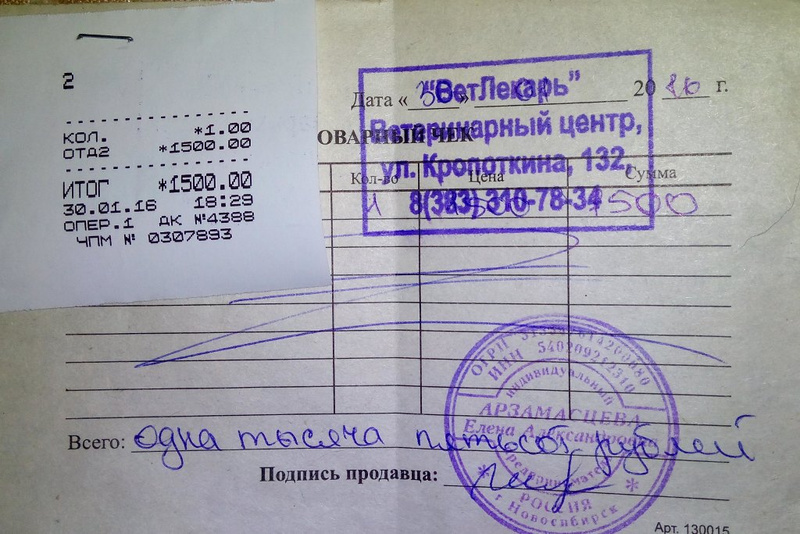 2
КОЛ. *1.00
ОТД2 *1500.00
ИТОГ *1500.00
30.01.16 18:29
ОПЕР.1 ДК №4388
ЧПМ № 0307893
Дата « 30 » 01 20 16 г.
"ВетЛекарь"
Ветеринарный центр,
ул. Кропоткина, 132,
8(383) 310-78-34
ОВАРНЫЙ ЧЕК
Кол-во Цена Сумма
1 1500 1500
ОГРН
ИНН
индивидуальный
АРЗАМАСЦЕВА
Елена Александровна
предприниматель
РОССИЯ
г Новосибирск
Всего: одна тысяча пятьсот рублей
Подпись продавца:
Арт. 130015